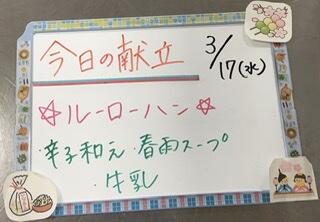 今日の献立 3/17(水)
☆ルーローハン☆
・辛子和え・春雨スープ
・牛乳